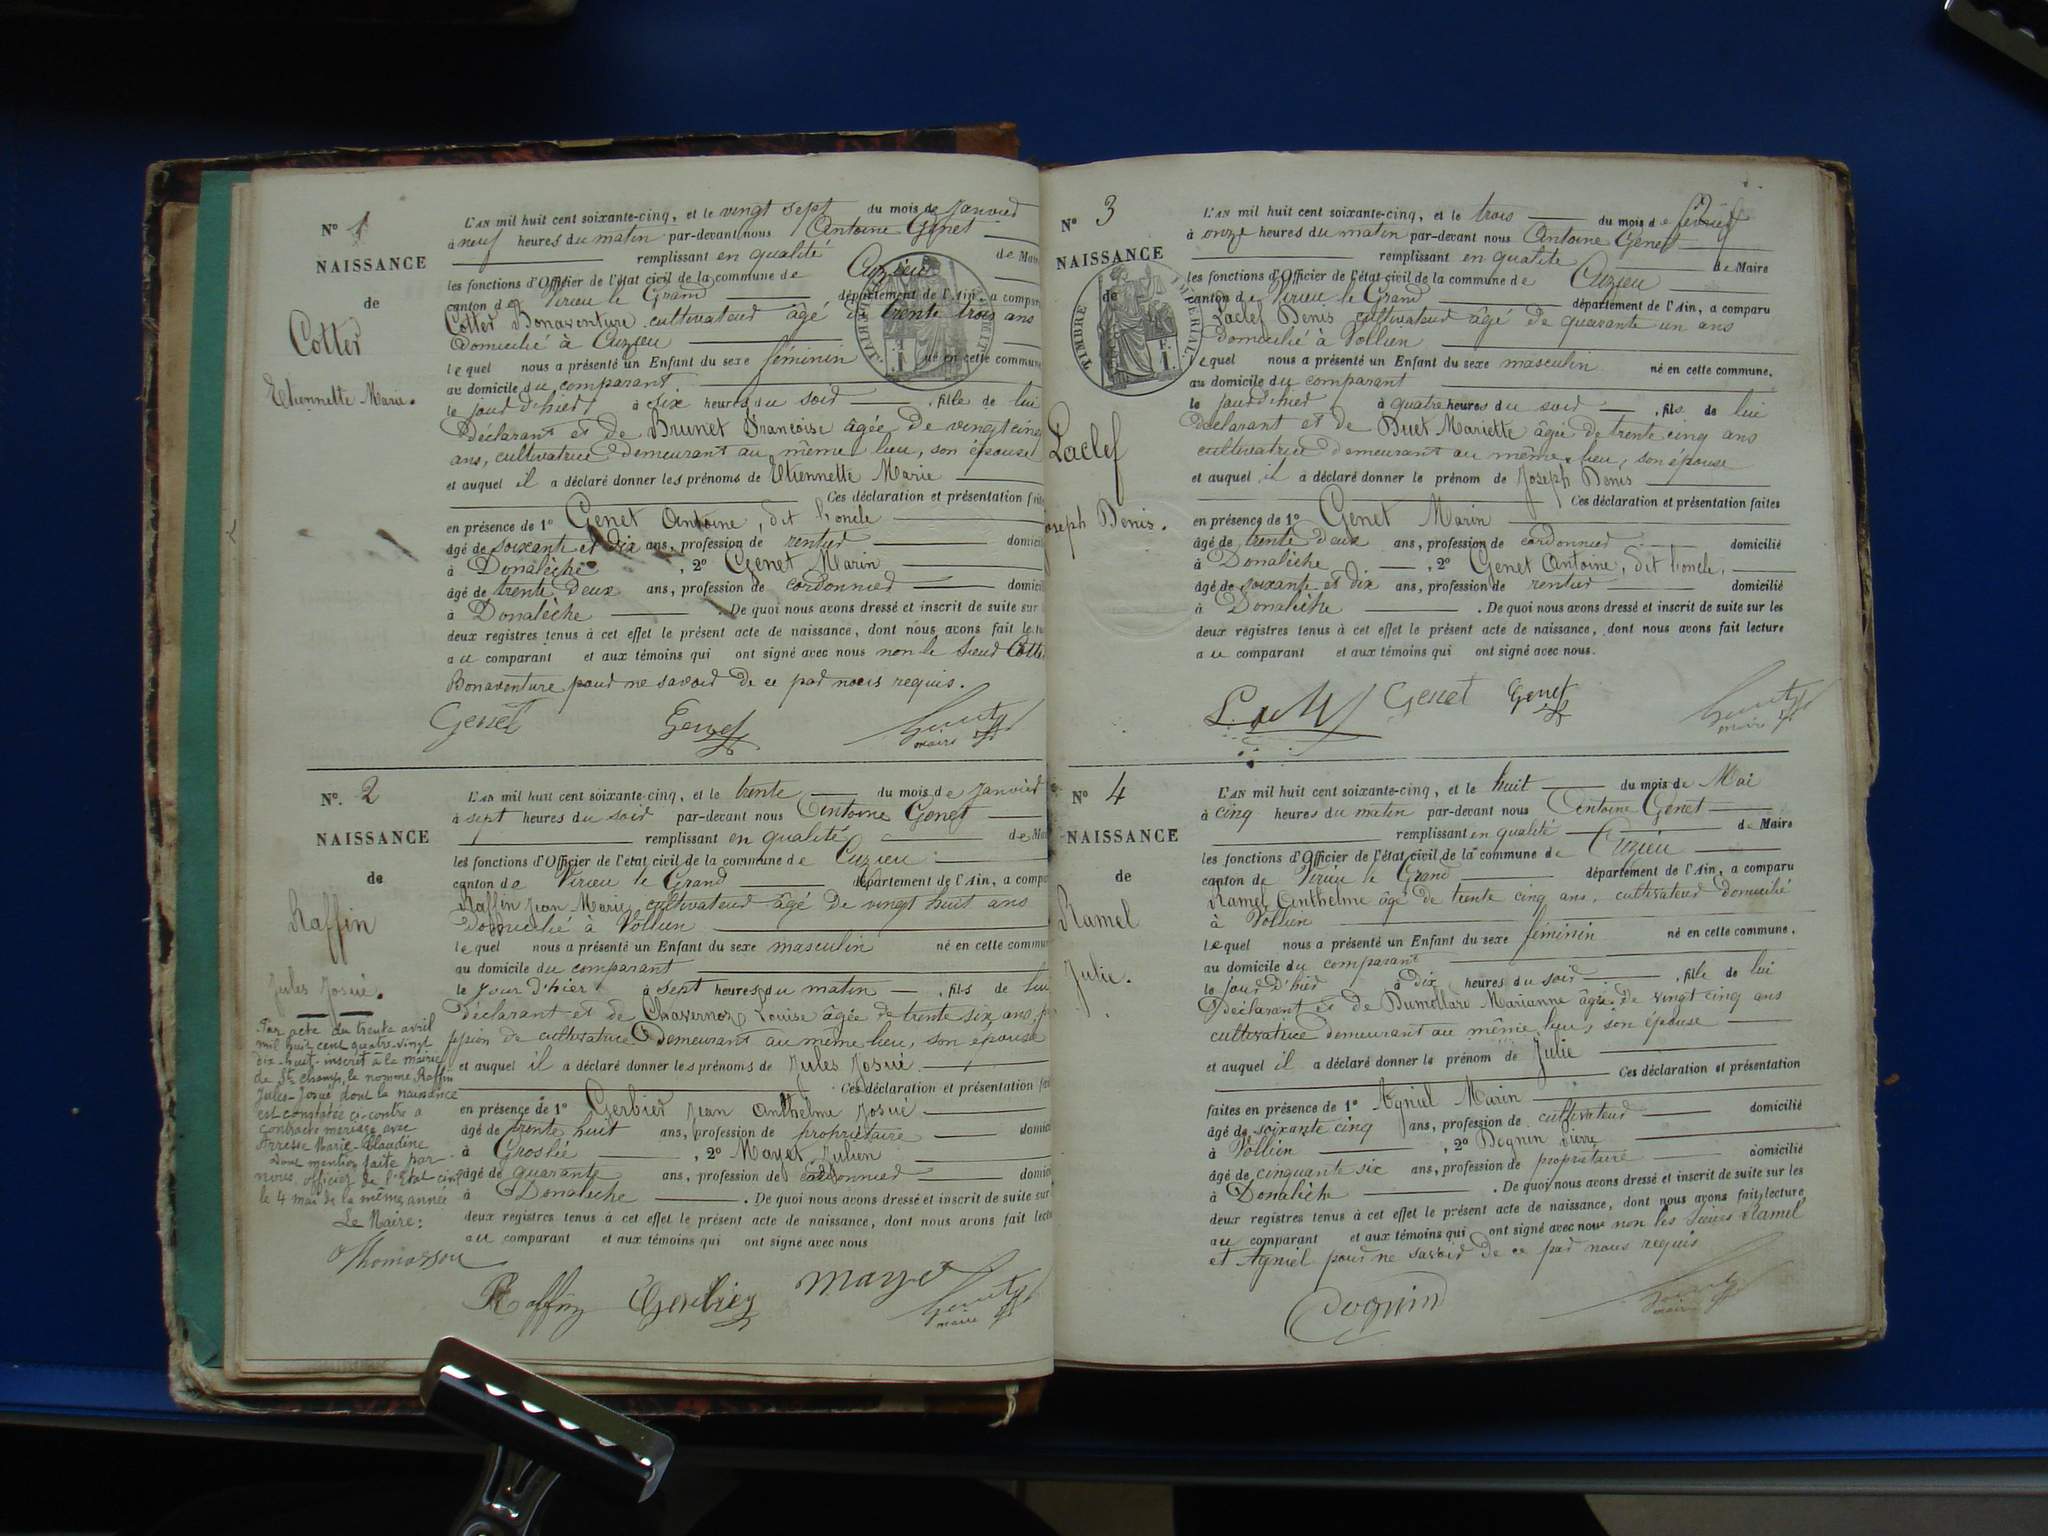 N° 1
NAISSANCE
de
Cotter
Etiennette Marie.
L'AN mil huit cent soixante-cinq, et le vingt sept du mois de Janvier
à neuf heures du matin par-devant nous Antoine Genet
remplissant en qualité de Mai
les fonctions d'Officier de l'état civil de la commune de Cuzieu
canton de Virieu le Grand département de l'Ain, a compar
Cotter Bonaventure cultivateur âgé de trente trois ans
Domicilié à Cuzieu
lequel nous a présenté un Enfant du sexe féminin né en cette commune
au domicile du comparant
le jour d'hier à six heures du soir, fille de lui
Déclarant et de Brunet Françoise âgée de vingt cinq
ans, cultivatrice demeurant au même lieu, son épouse
et auquel il a déclaré donner les prénoms de Etiennette Marie
Ces déclaration et présentation faite
en présence de 1° Genet Antoine, dit l'oncle
âgé de soixante et dix ans, profession de rentier domicili
à Donalèche, 2° Genet Marin
âgé de trente deux ans, profession de cordonnier domicili
à Donalèche. De quoi nous avons dressé et inscrit de suite sur
deux registres tenus à cet effet le présent acte de naissance, dont nous avons fait lectu
au comparant et aux témoins qui ont signé avec nous non le sieur Cotter
Bonaventure pour ne savoir de ce par nous requis.
Genet Genet maire
N°. 2
NAISSANCE
de
Raffin
Jules Josué.
Par acte du trente avril
mil huit cent quatre-vingt
dix-huit inscrit à la mairie
de St Champ, le nommé Raffin
Jules-Josué dont la naissance
est constatée ci-contre a
contracté mariage avec
Marie-Claudine
Dont mention faite par
nous, officier de l'Etat civil
le 4 mai de la même année
Le Maire:
Thomasson
L'AN mil huit cent soixante-cinq, et le trente du mois de Janvier
à sept heures du soir par-devant nous Antoine Genet
remplissant en qualité de Mai
les fonctions d'Officier de l'état civil de la commune de Cuzieu
canton de Virieu le Grand département de l'Ain, a compar
Raffin Jean Marie cultivateur âgé de vingt huit ans
Domicilié à Vollien
lequel nous a présenté un Enfant du sexe masculin né en cette commun
au domicile du comparant
le jour d'hier à sept heures du matin, fils de lui
Déclarant et de Chavernoz Louise âgée de trente six ans, p
fession de cultivatrice Demeurant au même lieu, son épouse
et auquel il a déclaré donner les prénoms de Jules Josué
Ces déclaration et présentation fai
en présence de 1° Gerbier Jean Anthelme Josué
âgé de trente huit ans, profession de propriétaire domici
à Groslée, 2° Mayet Julien
âgé de quarante ans, profession de cordonnier domici
à Donalèche. De quoi nous avons dressé et inscrit de suite sur
deux registres tenus à cet effet le présent acte de naissance, dont nous avons fait lectu
au comparant et aux témoins qui ont signé avec nous
Raffin Gerbier Mayet maire
N° 3
NAISSANCE
de
TIMBRE IMPÉRIAL
Laclef
Joseph Denis.
L'AN mil huit cent soixante-cinq, et le trois du mois de février
à onze heures du matin par-devant nous Antoine Genet
remplissant en qualité de Maire
les fonctions d'Officier de l'état civil de la commune de Cuzieu
canton de Virieu le Grand département de l'Ain, a comparu
Laclef Denis cultivateur âgé de quarante un ans
domicilié à Vollien
lequel nous a présenté un Enfant du sexe masculin né en cette commune,
au domicile du comparant
le jour d'hier à quatre heures du soir, fils de lui
déclarant et de Buet Mariette âgée de trente cinq ans
cultivatrice demeurant au même lieu, son épouse
et auquel il a déclaré donner le prénom de Joseph Denis
Ces déclaration et présentation faites
en présence de 1° Genet Marin
âgé de trente deux ans, profession de cordonnier domicilié
à Donalèche, 2° Genet Antoine, dit l'oncle,
âgé de soixante et dix ans, profession de rentier domicilié
à Donalèche. De quoi nous avons dressé et inscrit de suite sur les
deux registres tenus à cet effet le présent acte de naissance, dont nous avons fait lecture
au comparant et aux témoins qui ont signé avec nous.
Genet Genet maire
N° 4
NAISSANCE
de
Ramel
Julie.
L'AN mil huit cent soixante-cinq, et le huit du mois de Mai
à cinq heures du matin par-devant nous Antoine Genet
remplissant en qualité de Maire
les fonctions d'Officier de l'état civil de la commune de Cuzieu
canton de Virieu le Grand département de l'Ain, a comparu
Ramel Anthelme âgé de trente cinq ans, cultivateur domicilié
à Vollien
lequel nous a présenté un Enfant du sexe féminin né en cette commune,
au domicile du comparant
le jour d'hier à dix heures du soir, fille de lui
Déclarant et de Dumollard Marianne âgée de vingt cinq ans
cultivatrice demeurant au même lieu, son épouse
et auquel il a déclaré donner le prénom de Julie
Ces déclaration et présentation
faites en présence de 1° Agniel Marin
âgé de soixante cinq ans, profession de cultivateur domicilié
à Vollien, 2° Dognin Pierre
âgé de cinquante six ans, profession de propriétaire domicilié
à Donalèche. De quoi nous avons dressé et inscrit de suite sur les
deux registres tenus à cet effet le présent acte de naissance, dont nous avons fait lecture
au comparant et aux témoins qui ont signé avec nous non les sieurs Ramel
et Agniel pour ne savoir de ce par nous requis
Dognin maire